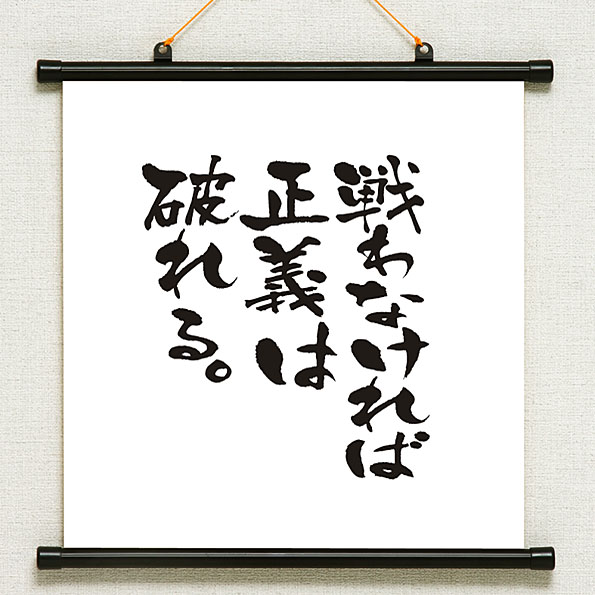 戦わなければ
正義は
破れる。